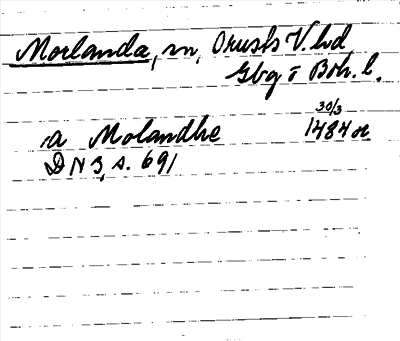 Morlanda, sn, Orusts V. hd
Gbg o Boh. l.
30/3
a Molandhe 1484 or
DN 3, s. 691